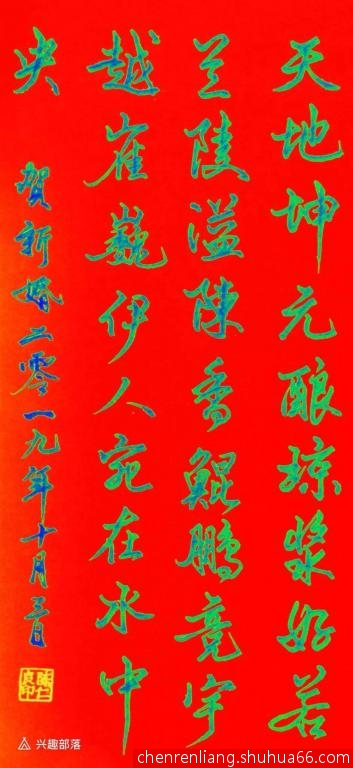 天地坤元酿琼浆好若
兰陵溢陈香鲲鹏竞宇
越崔巍伊人宛在水中
央
贺新婚二零一九年十月三日
陈仁良印
兴趣部落
chenrenliang.shuhua66.com